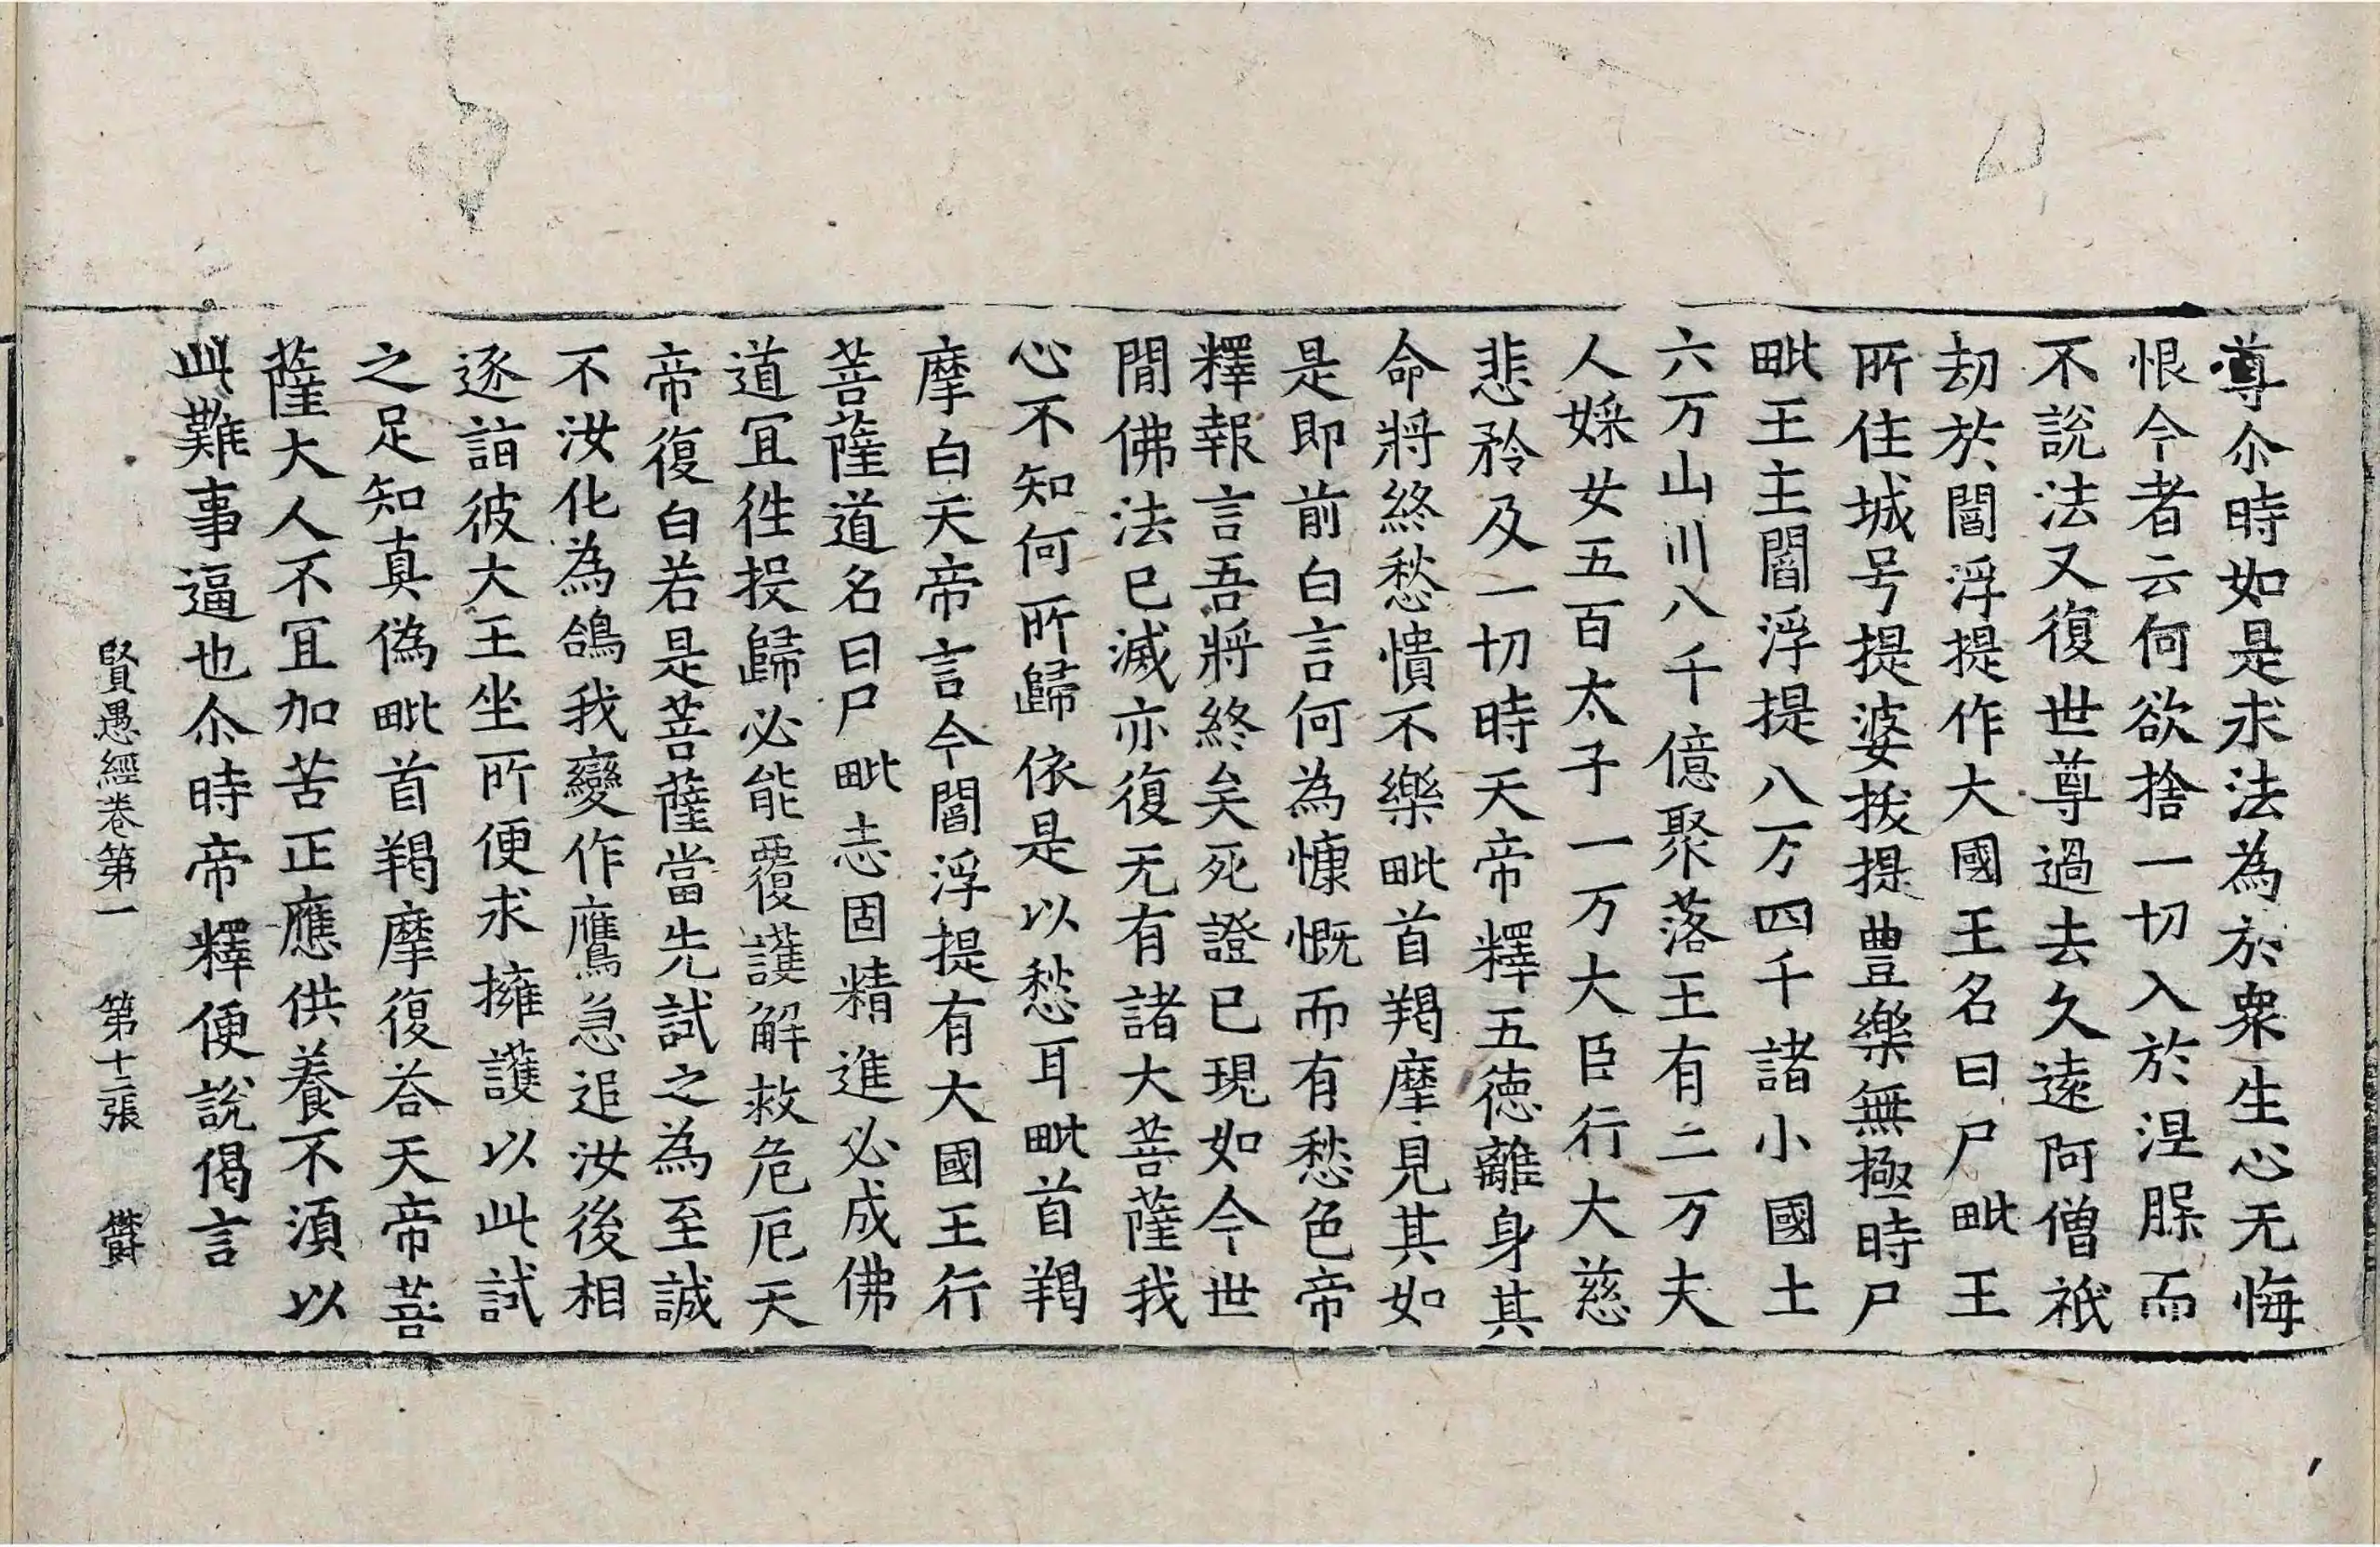 尊尒時如是求法為於衆生心无悔
恨今者云何欲捨一切入於涅槃而
不說法又復世尊過去久遠阿僧祇
劫於閻浮提作大國王名曰尸毗王
所住城号提婆拔提豊樂無極時尸
毗王主閻浮提八万四千諸小國土
六万山川八千億聚落王有二万夫
人婇女五百太子一万大臣行大慈
悲矜及一切時天帝釋五德離身其
命將終愁憒不樂毗首羯摩見其如
是即前白言何為慷慨而有愁色帝
釋報言吾將終矣死證已現如今世
閒佛法已滅亦復无有諸大菩薩我
心不知何所歸依是以愁耳毗首羯
摩白天帝言今閻浮提有大國王行
菩薩道名曰尸毗志固精進必成佛
道冝徃投歸必能覆護解救危厄天
帝復白若是菩薩當先試之為至誠
不汝化為鴿我變作鷹急追汝後相
逐詣彼大王坐所便求擁護以此試
之足知真偽毗首羯摩復荅天帝菩
薩大人不冝加苦正應供養不湏以
此難事逼也尒時帝釋便說偈言
賢愚經卷第一 第十二張